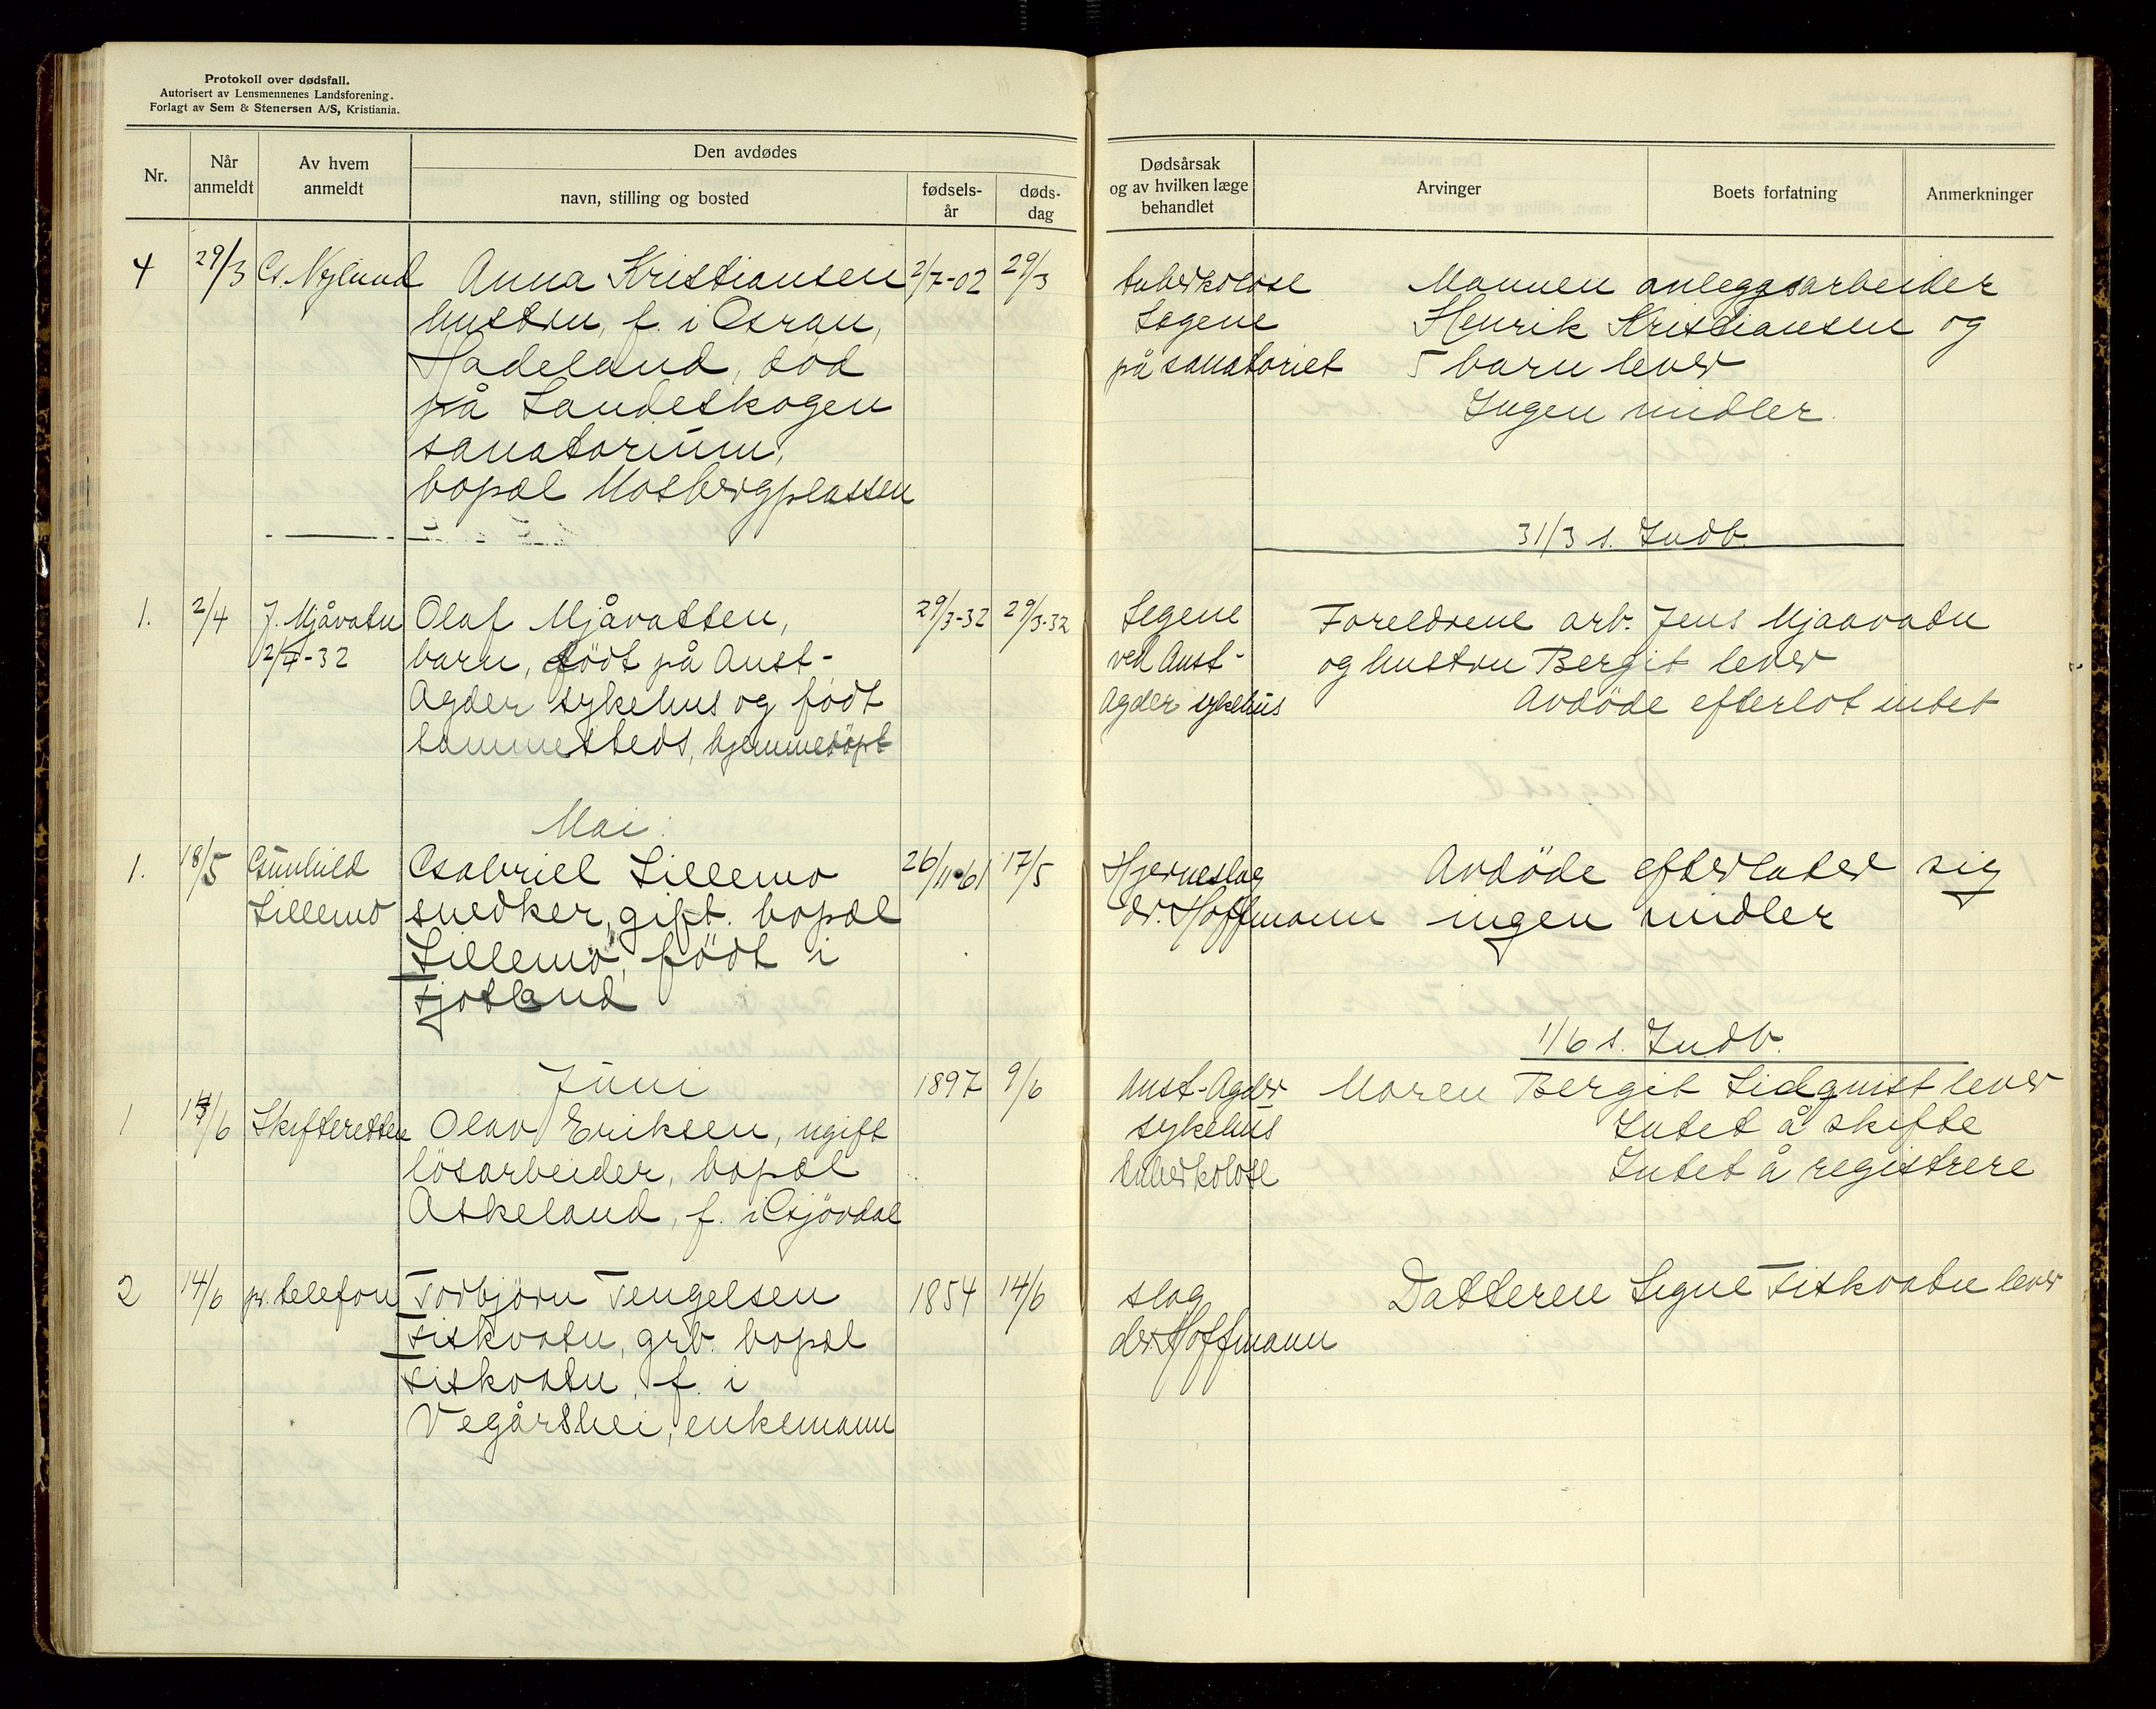 Protokoll over dødsfall.
Autorisert av Lensmennenes Landsforening.
Forlagt av Sem & Stenersen A/S, Kristiania.
Nr.
Når anmeldt
Av hvem anmeldt
Den avdødes
navn, stilling og bosted
fødsels-år
døds-dag
Dødsårsak og av hvilken læge behandlet
Arvinger
Boets forfatning
Anmerkninger
4 29/3 G. Nylund Anna Kristiansen 2/7-02 29/3
hustru, f. i Gran,
Hadeland, död
på Landeskogen
sanatorium,
bopæl Mosbergplassen
tuberkolose
Legene
på sanatoriet
Mannen anleggsarbeider
Henrik Kristiansen og
5 barn lever
Ingen midler.
31/3 s. Indb.
1. 2/4 J. Mjåvatn Olaf Mjåvatten, 29/3-32 29/3-32
2/4-32 barn, födt på Aust-
Agder sykehus og födt
sammesteds, hjemmedöpt
Legene
ved Aust-
Agder sykehus
Foreldrene arb. Jens Mjaavatn
og hustru Bergit lever
Avdöde efterlot intet
Mai.
1. 18/5 Gunhild Gabriel Lillemo 26/11-61 17/5
Lillemo snedker, gift. bopæl
Lillemo, födt i
Fjotland
Hjerneslag
dr. Hoffmann
Avdöde efterlater sig
ingen midler
1/6 s. Indb.
Juni 1897 9/6
1 /6 Skifteretten Olav Eriksen, ugift
lösarbeider, bopæl
Askeland, f. i Gjövdal
Aust-Agder
sykehus
tuberkolose
Maren Bergit Lidquist lever
Intet å skifte
Intet å registrere
2 14/6 pr. telefon Torbjörn Tengelsen 1854 14/6
Fiskvatn, grb. bopæl
Fiskvatn, f. i
Vegårshei, enkemann
slag
dr. Hoffmann
Datteren Signe Fiskvatn lever